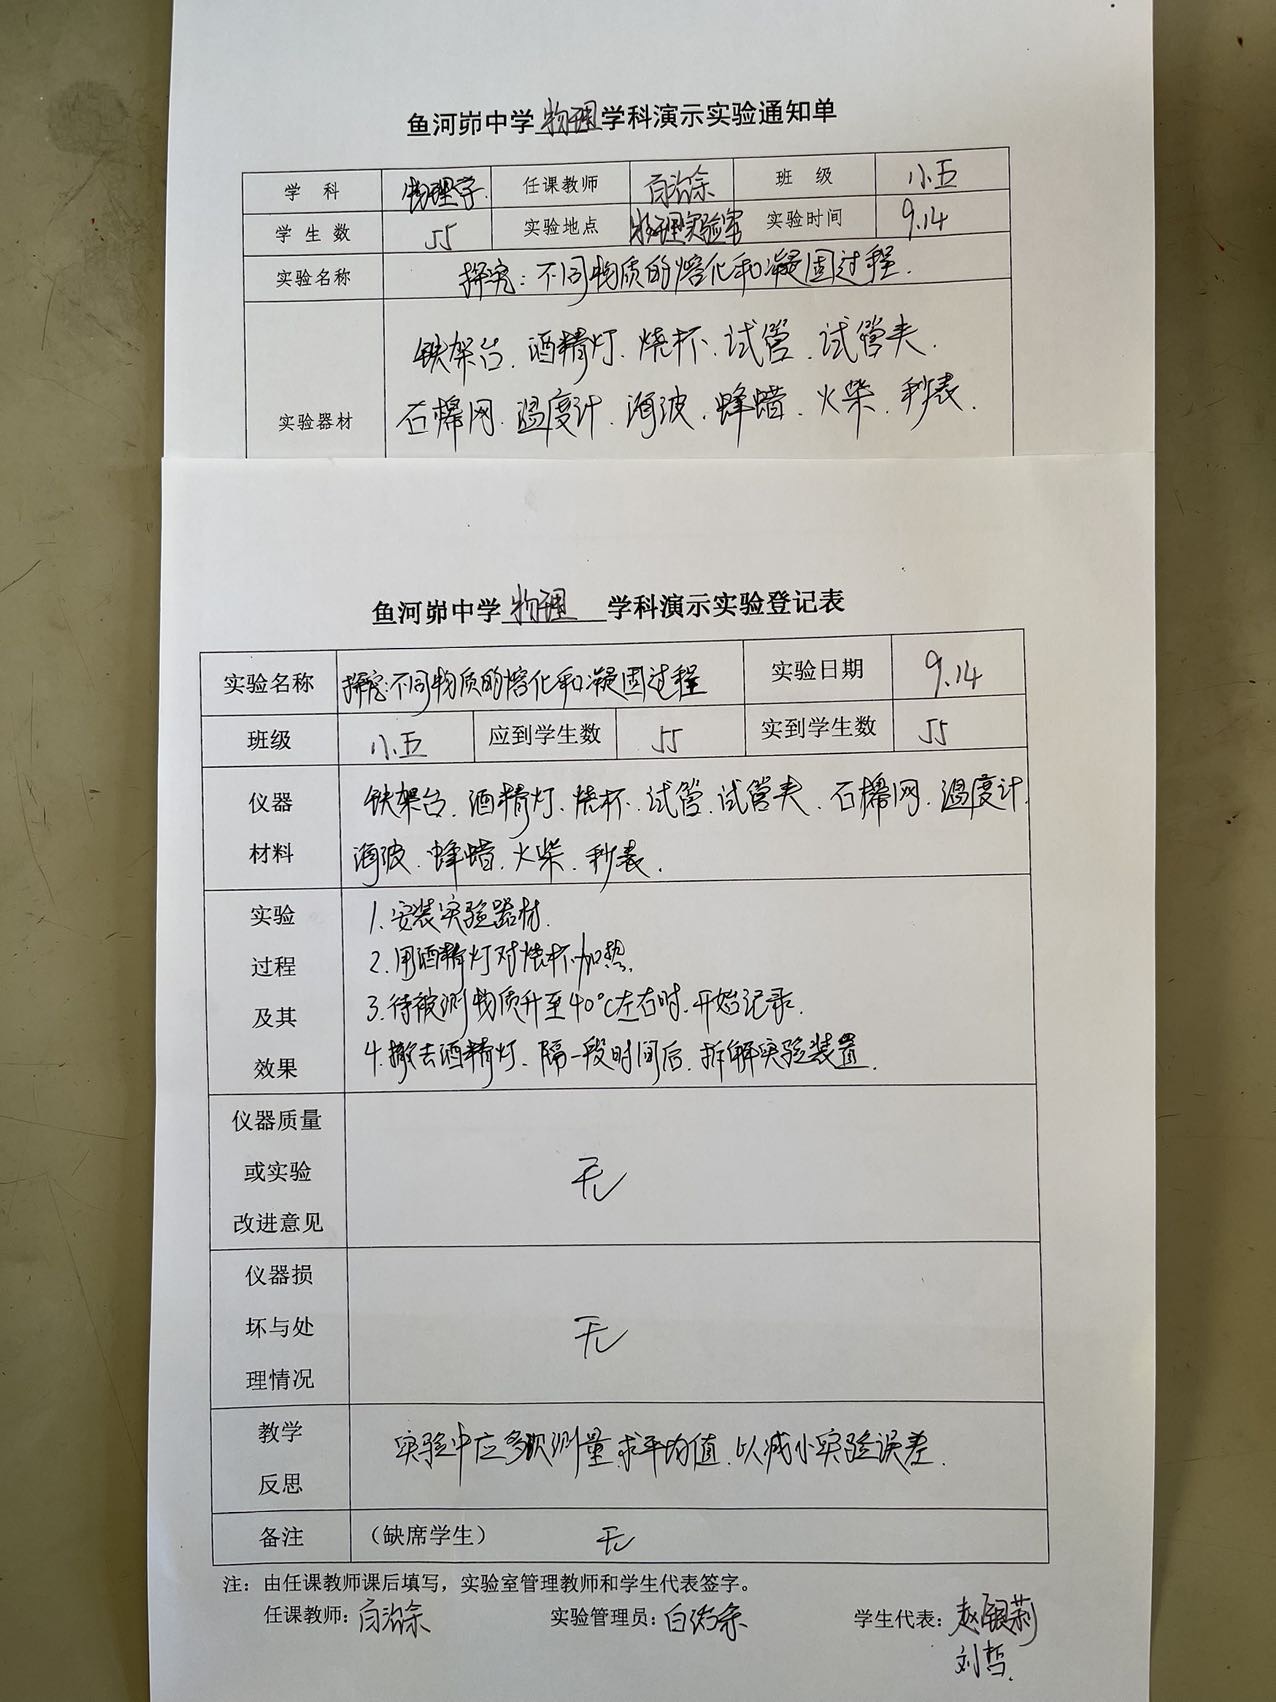 鱼河峁中学物理学科演示实验通知单
学 科 物理学 任课教师 白治余 班 级 八.五
学 生 数 55 实验地点 物理实验室 实验时间 9.14
实验名称 探究:不同物质的熔化和凝固过程.
铁架台.酒精灯.烧杯.试管.试管夹.
实验器材 石棉网.温度计.海波.蜂蜡.火柴.秒表.
鱼河峁中学 物理 学科演示实验登记表
实验名称 探究:不同物质的熔化和凝固过程 实验日期 9.14
班级 八.五 应到学生数 55 实到学生数 55
仪器 铁架台.酒精灯.烧杯.试管.试管夹.石棉网.温度计.
材料 海波.蜂蜡.火柴.秒表.
实验 1.安装实验器材.
过程 2.用酒精灯对烧杯加热.
及其 3.待被测物质升至40℃左右时.开始记录.
效果 4.撤去酒精灯.隔一段时间后.拆解实验装置.
仪器质量
或实验 无
改进意见
仪器损
坏与处 无
理情况
教学 实验中应多次测量.求平均值.以减小实验误差.
反思
备注 (缺席学生) 无
注:由任课教师课后填写,实验室管理教师和学生代表签字。
任课教师:白治余 实验管理员:白治余 学生代表:赵银莉
刘哲.